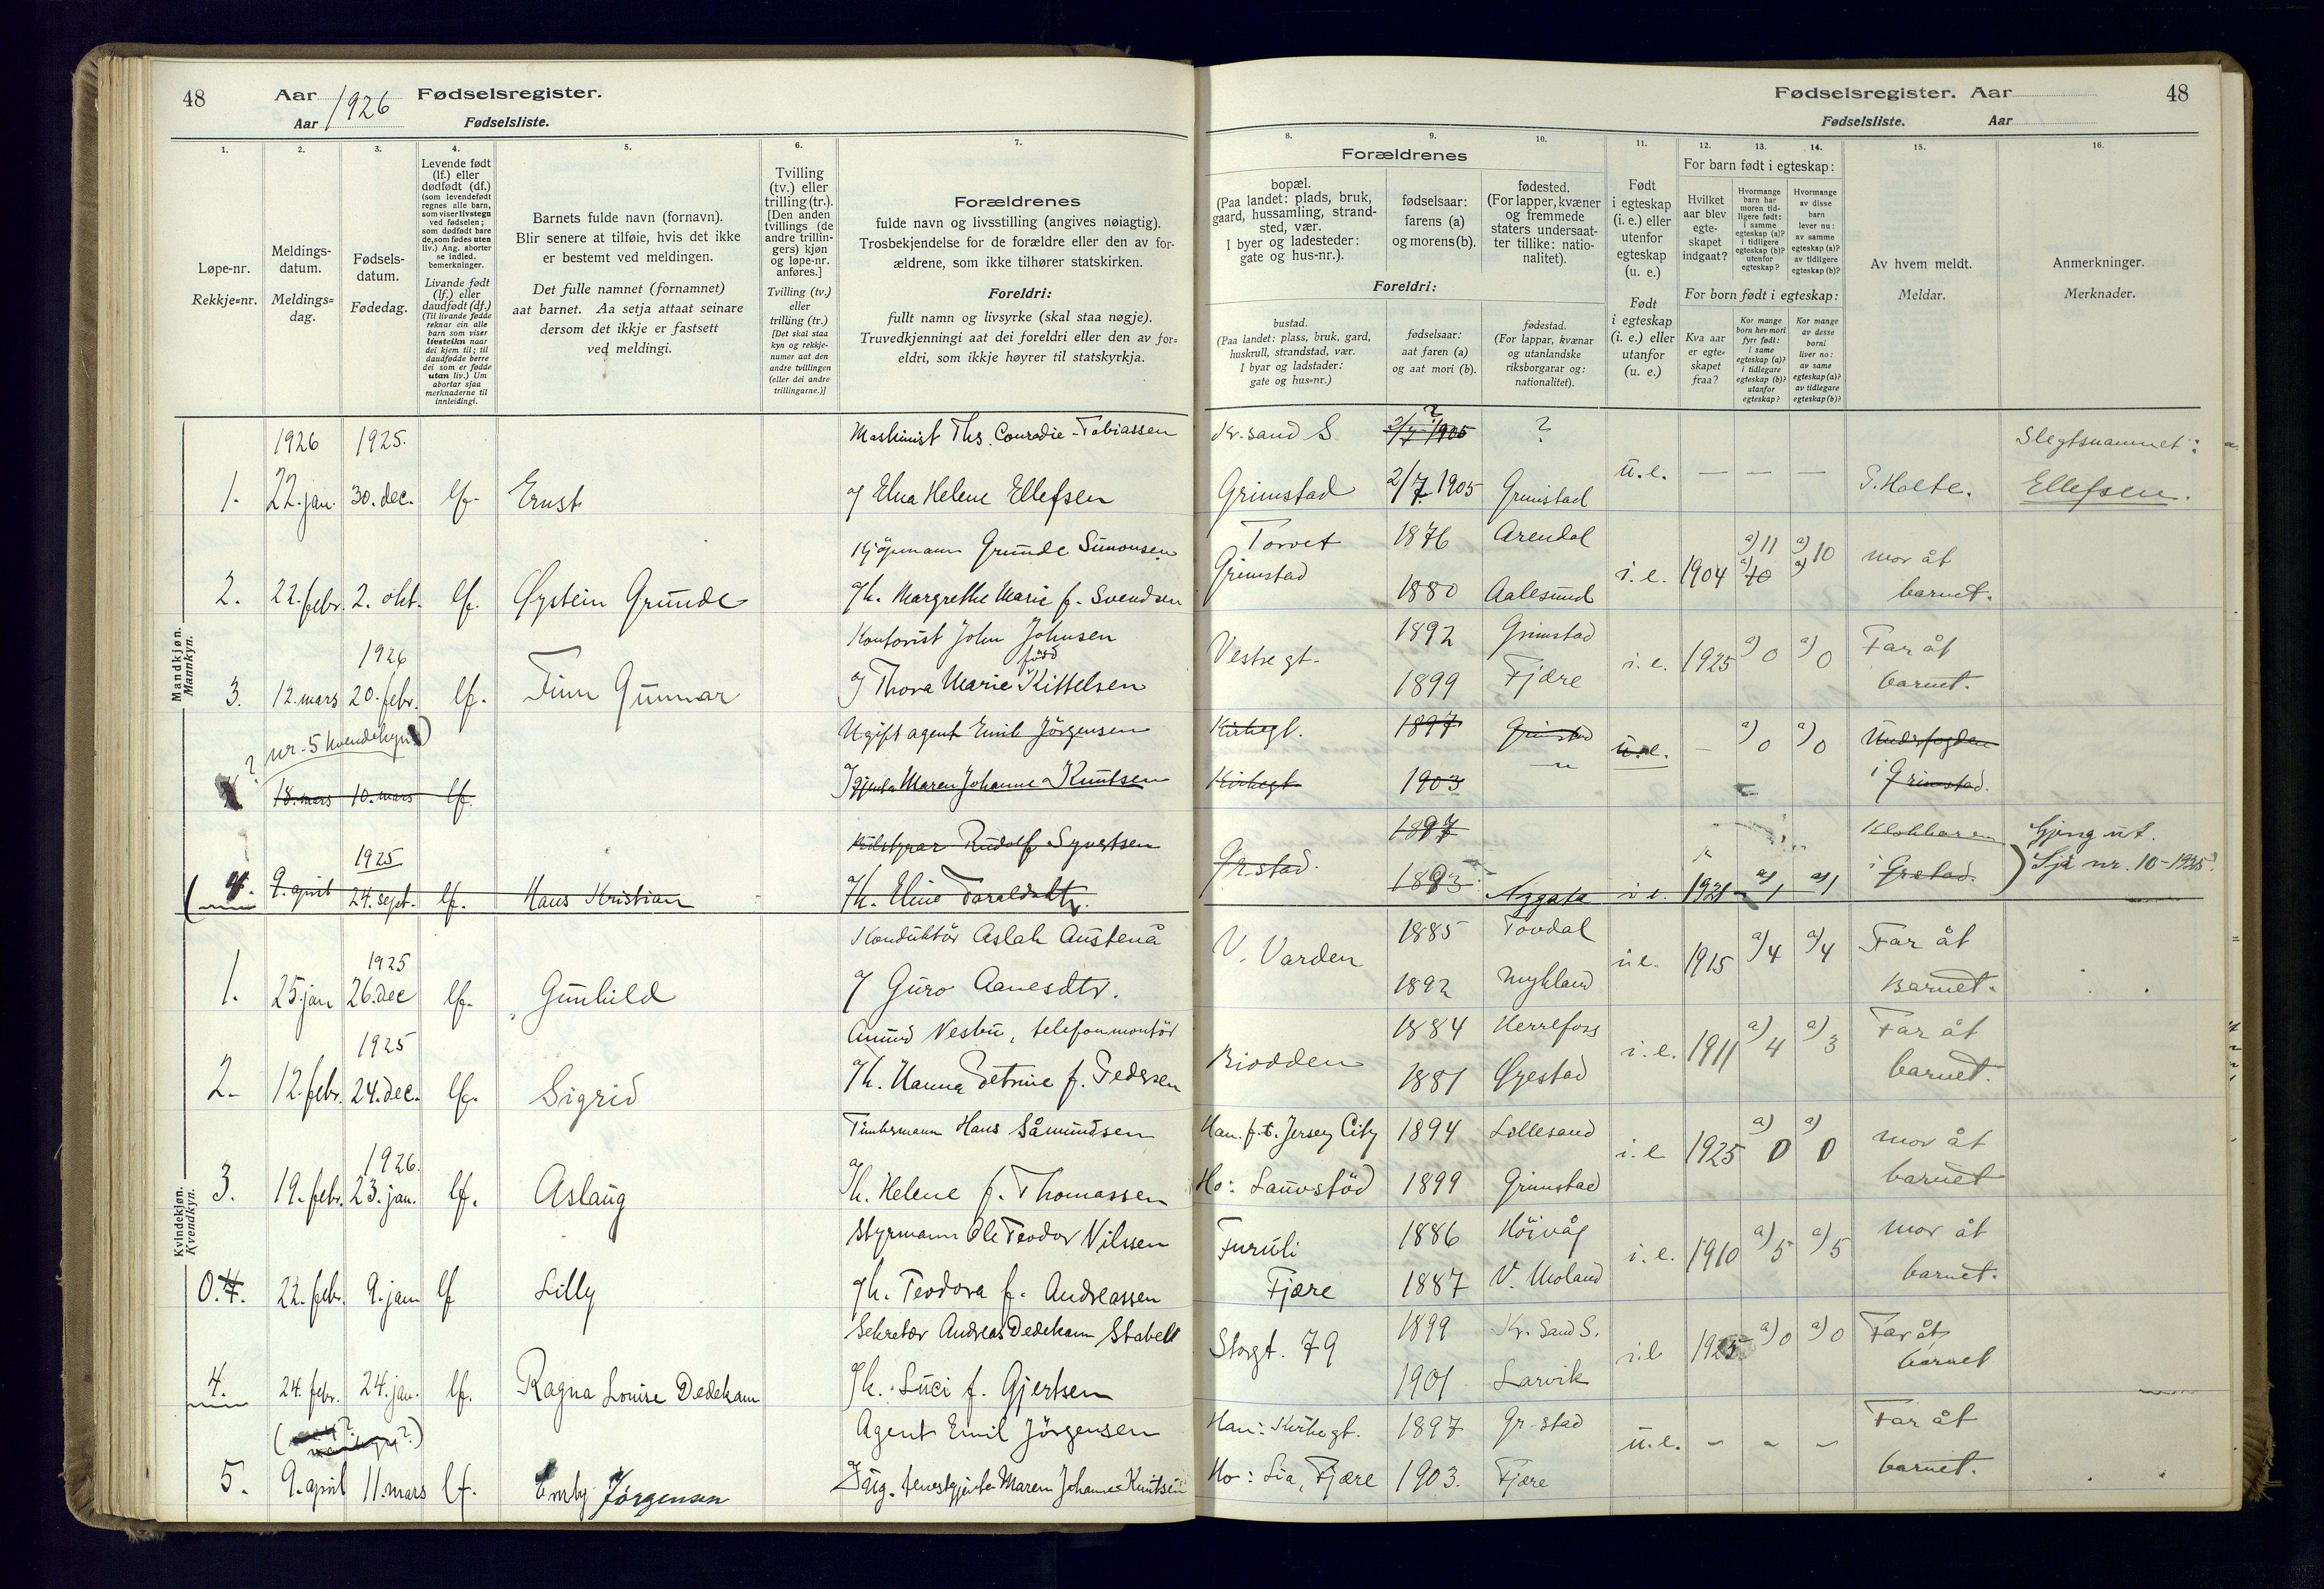 48 Aar 1926 Fødselsregister.
Aar Fødselsliste.
1. 2. 3. 4. 5. 6. 7.
Løpe-nr.
Rekkje=nr.
Meldings-
datum.
Meldings=
dag.
Fødsels-
datum.
Fødedag.
Levende født
(lf.) eller
dødfødt (df.)
(som levendefødt
regnes alle barn,
som viser livstegn
ved fødselen;
som dødfødt bare
de, som fødes uten
liv.) Ang. aborter
se indled.
bemerkninger.
Livande født
(lf.) eller
daudfødt (df.)
(Til livande fødde
reknar ein alle
barn som viser
livsteikn naar
dei kjem til; til
daudfødde berre
dei som er fødde
utan liv.) Um
abortar sjaa
merknaderne til
innleidingi.
Barnets fulde navn (fornavn).
Blir senere at tilføie, hvis det ikke
er bestemt ved meldingen.
Det fulle namnet (fornamnet)
aat barnet. Aa setja attaat seinare
dersom det ikkje er fastsett
ved meldingi.
Tvilling
(tv.) eller
trilling (tr.).
[Den anden
tvillings (de
andre trillin-
gers) kjøn
og løpe-nr.
anføres.]
Tvilling (tv.)
eller
trilling (tr.)
[Det skal staa
kyn og rekkje-
numer aat den
andre tvillingen
(eller dei andre
trillingarne.)]
Forældrenes
fulde navn og livsstilling (angives nøiagtig).
Trosbekjendelse for de forældre eller den av for-
ældrene, som ikke tilhører statskirken.
Foreldri:
fullt namn og livsyrke (skal staa nøgje).
Truvedkjenningi aat dei foreldri eller den av for=
eldri, som ikkje høyrer til statskyrkja.
Mandkjøn.
Mannkyn.
1926 1925. Maskinist Ths. Conradie-Tobiassen
1. 22. jan. 30. dec. lf. Ernst og Elna Helene Ellefsen
Kjøpmann Grunde Simonsen
2. 22. febr. 2. okt. lf. Øystein Grunde og h. Margrethe Marie f. Svendsen
1926 Kontorist John Johnsen
født
3. 12. mars 20. febr. lf. Finn Gunnar og Thora Marie Kittelsen
? nr. 5 kvendekyn) Ugift agent Emil Jörgensen
18. mars 10. mars lf. Maren Johanne Knutsen
1925 Rudolf Syvertsen
4. 9. april 24. sept. lf. Hans Kristian og h. Eline Taraldsdtr.
Kvindekjøn.
Kvendkyn.
1925 Konduktör Aslak Austenå
1. 25. jan 26. dec lf. Gunhild og Guro Aanesdtr.
1925 Amund Vesbu, telefonmontör
2. 12. febr. 24. dec. lf. Sigrid og h. Hanna Petrine f. Pedersen
1926. Timbermann Hans Såmundsen
3. 19. febr. 23. jan. lf. Aslaug og h. Helene f. Thomassen
Styrmann Ole Teodor Nilssen
0.4. 22. febr. 9. jan lf Lilly og h. Teodora f. Andreassen
Sekretær Andreas Dedekam Stabell
4. 24. febr. 24. jan. lf. Ragna Louise Dedekam og h. Luci f. Gjertsen
Agent Emil Jörgensen
5. 9. april 11. mars lf. Emly Jörgensen og ug. tenestgjenta Maren Johanne Knutsen
Fødselsregister. Aar 48
Fødselsliste. Aar
8. 9. 10. 11. 12. 13. 14. 15. 16.
Forældrenes
bopæl.
(Paa landet: plads, bruk,
gaard, hussamling, strand-
sted, vær.
I byer og ladesteder:
gate og hus-nr.).
fødselsaar:
farens (a)
og morens (b).
fødested.
(For lapper, kvæner
og fremmede
staters undersaat-
ter tillike: natio-
nalitet).
Foreldri:
bustad.
(Paa landet: plass, bruk, gard,
huskrull, strandstad, vær.
I byar og ladstader:
gate og hus=nr.)
fødselsaar:
aat faren (a)
og aat mori (b).
fødestad.
(For lappar, kvænar
og utanlandske
riksborgarar og:
nationalitet).
Født
i egteskap
(i. e.) eller
utenfor
egteskap
(u. e.)
Født
i egteskap
(i. e.) eller
utanfor
egteskap
(u. e.)
For barn født i egteskap:
Hvilket
aar blev
egte-
skapet
indgaat?
Hvormange
barn har
moren tid-
ligere født:
i samme
egteskap (a)?
i tidligere
egteskap (b)?
utenfor
egteskap?
Hvormange
av disse
barn
lever nu:
av samme
egteskap (a)?
av tidligere
egteskap (b)?
For born født i egteskap:
Kva aar
er egte=
skapet
fraa?
Kor mange
born hev mori
fyrr født:
i same
egteskap (a)?
i tidlegare
egteskap (b)?
utanfor
egteskap?
Kor mange
av desse
borni
liver no:
av same
egteskap (a)?
av tidlegare
egteskap (b)?
Av hvem meldt.
Meldar.
Anmerkninger.
Merknader.
Kr.sand S. 2/7 1905 ? ? Slegtsnamnet:
Grimstad 2/7 1905 Grimstad u.e. — — — S. Holte. Ellefsen.
Torvet 1876 Arendal a) 11 a) 10 mor åt
Grimstad 1880 Aalesund i.e. 1904 a) 10 a) barnet.
Vestregt. 1892 Grimstad i.e. 1925 a) 0 a) 0 Far åt
1899 Fjære barnet.
Kirkegt. 1897 Grimstad u.e. — a) 0 a) 0 Underfogden
Kirkegt 1903 — i Grimstad.
Gr.stad. 1897 Klokkaren Gjeng ut.
1893 Nygata i e. 1921 a) 1 a) 1 i Gr.stad. Sjå nr. 10-1925.
V. Varden 1885 Tovdal i.e. 1915 a) 4 a) 4 Far åt
1892 Mykland Barnet.
Biodden 1884 Herrefoss i.e. 1911 a) 4 a) 3 Far åt
1881 Øyestad barnet.
Han. f.t. Jersey City 1894 Lillesand i.e 1925 a) 0 a) 0 mor åt
Ho: Lauvstöd 1899 Grimstad barnet
Furuli 1886 Höivåg i.e. 1910 a) 5 a) 5 mor åt
Fjære 1887 V. Moland barnet.
Storgt. 79 1899 Kr. Sand S. i.e 1925 a) 0 a) 0 Far åt
1901 Larvik barnet
Han: Kirkegt. 1897 Gr-stad u.e. — — — Far åt
Ho: Lia, Fjære 1903. Fjære barnet.